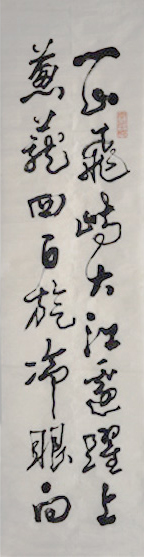 一山飛峙大江邊躍上
葱蘢四百旋冷眼向